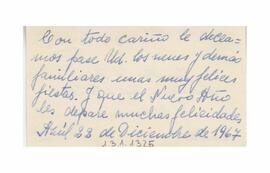 Con todo cariño le desea-
mos pase Ud. los nenes y demás
familiares unas muy felices
fiestas. Y que el Nuevo Año
les depare muchas felicidades
Azúl 23 de Diciembre de 1967
1.3.1.1325